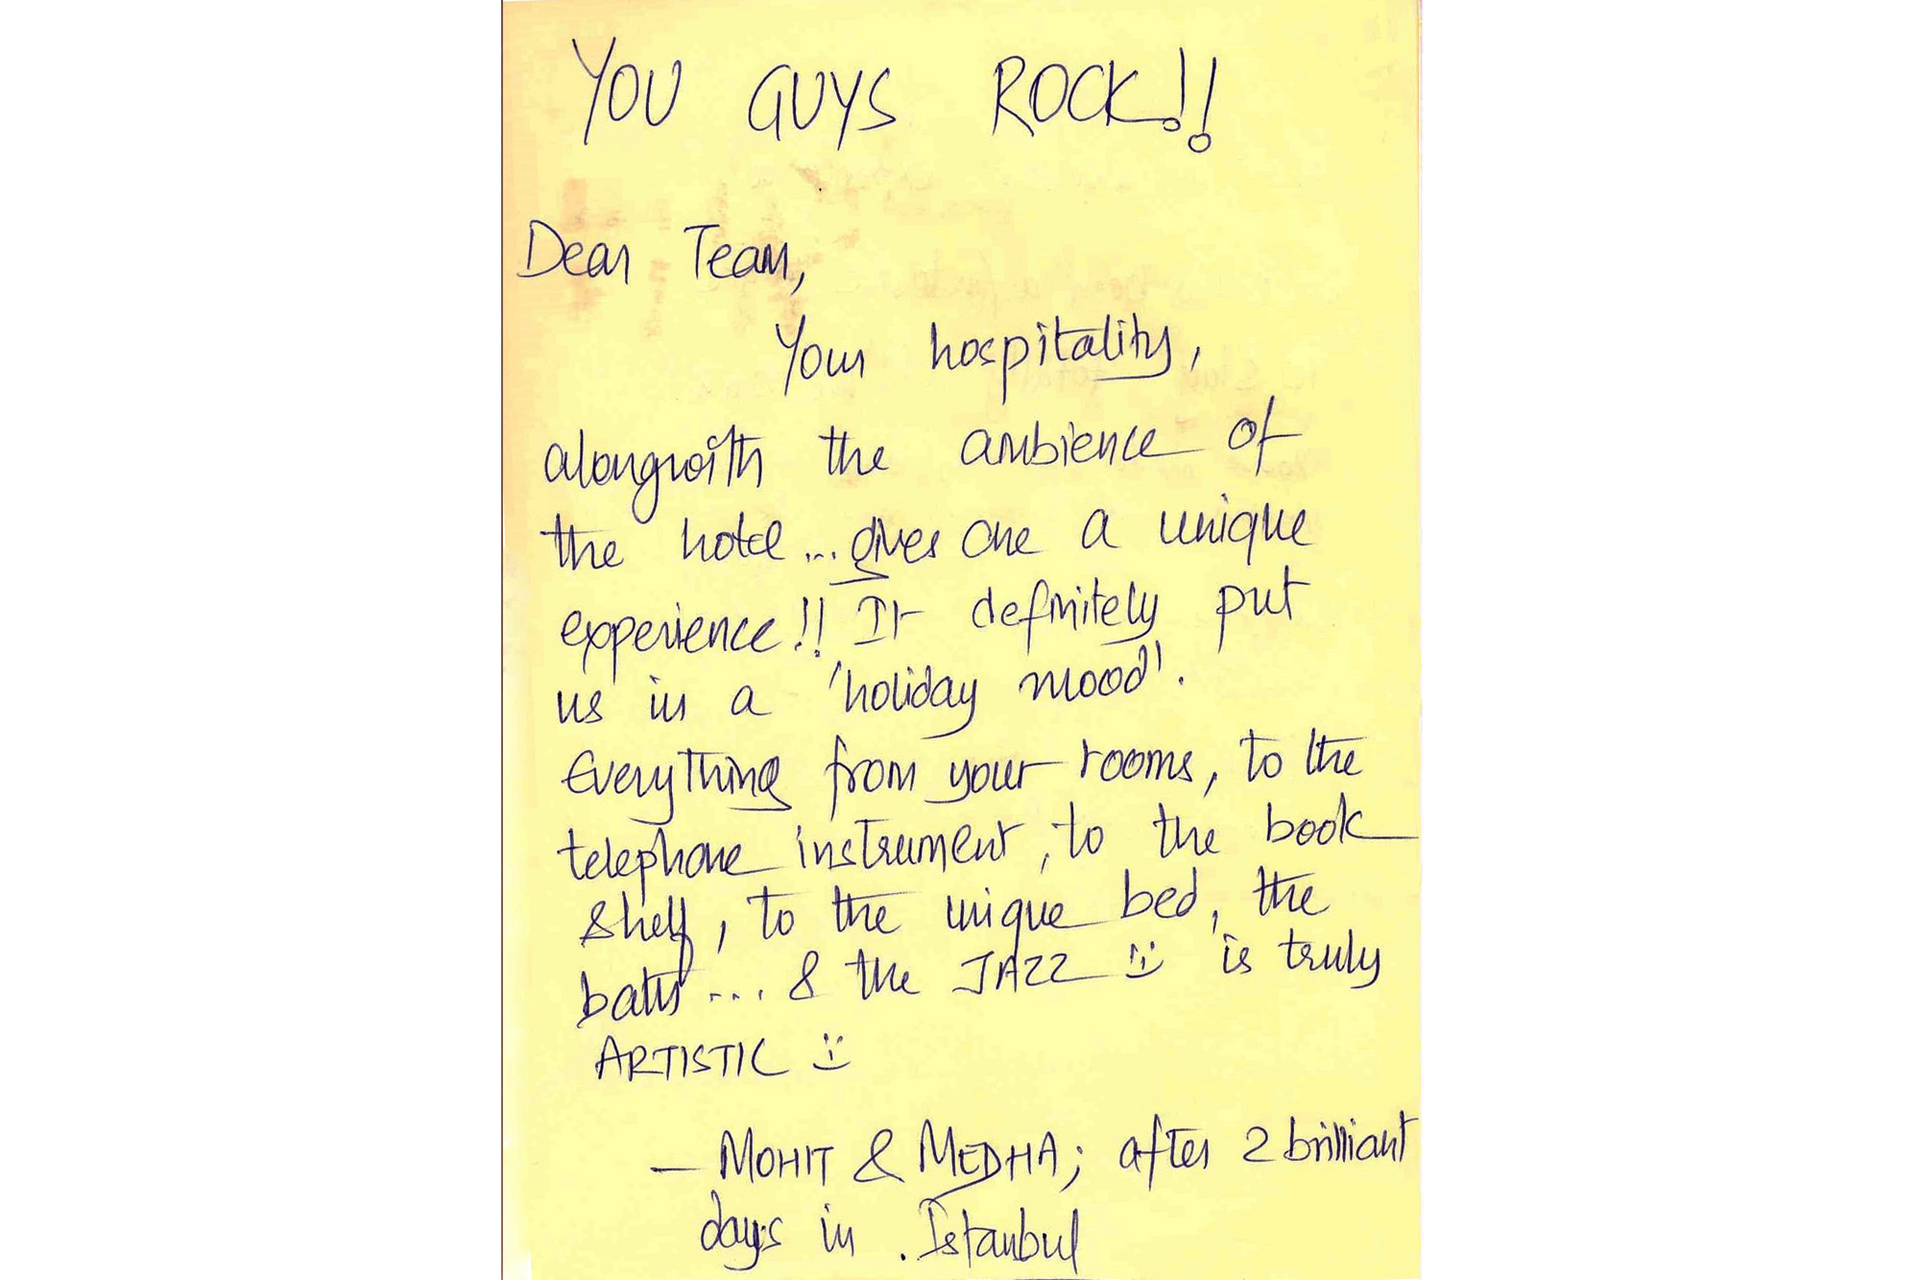 YOU GUYS ROCK!!
Dear Team,
Your hospitality,
alongwith the ambience of
the hotel... gives one a unique
experience!! It definitely put
us in a 'holiday mood'.
Everything from your rooms, to the
telephone instrument, to the book
shelf, to the unique bed, the
bath... & the JAZZ :) is truly
ARTISTIC :)
— MOHIT & MEDHA; after 2 brilliant
days in .Istanbul